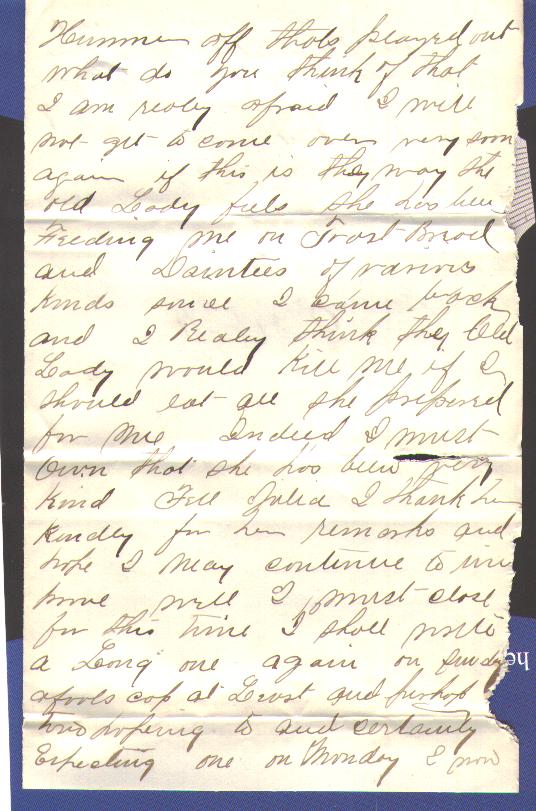 off thats played out
what do you think of that
I am realy afraid I will
not get to come over very soon
again if this is they way the
old Lady feels She has been
Feeding me on Toast Bread
and Dainties of various
Kinds since I came back
and I Realey think they Old
Lady would Kill me if I
should eat all she prepared
for me Indeed I must
Own that she has been very
kind Tell Julia I thank her
kindley for her remarks and
hope I may continue to im
prove well I must close
for this time I shall write
a Long one again on Sunday
afools cap at Least and perhaps
two hopeing to and certainly
Expecting one on Monday I now
he